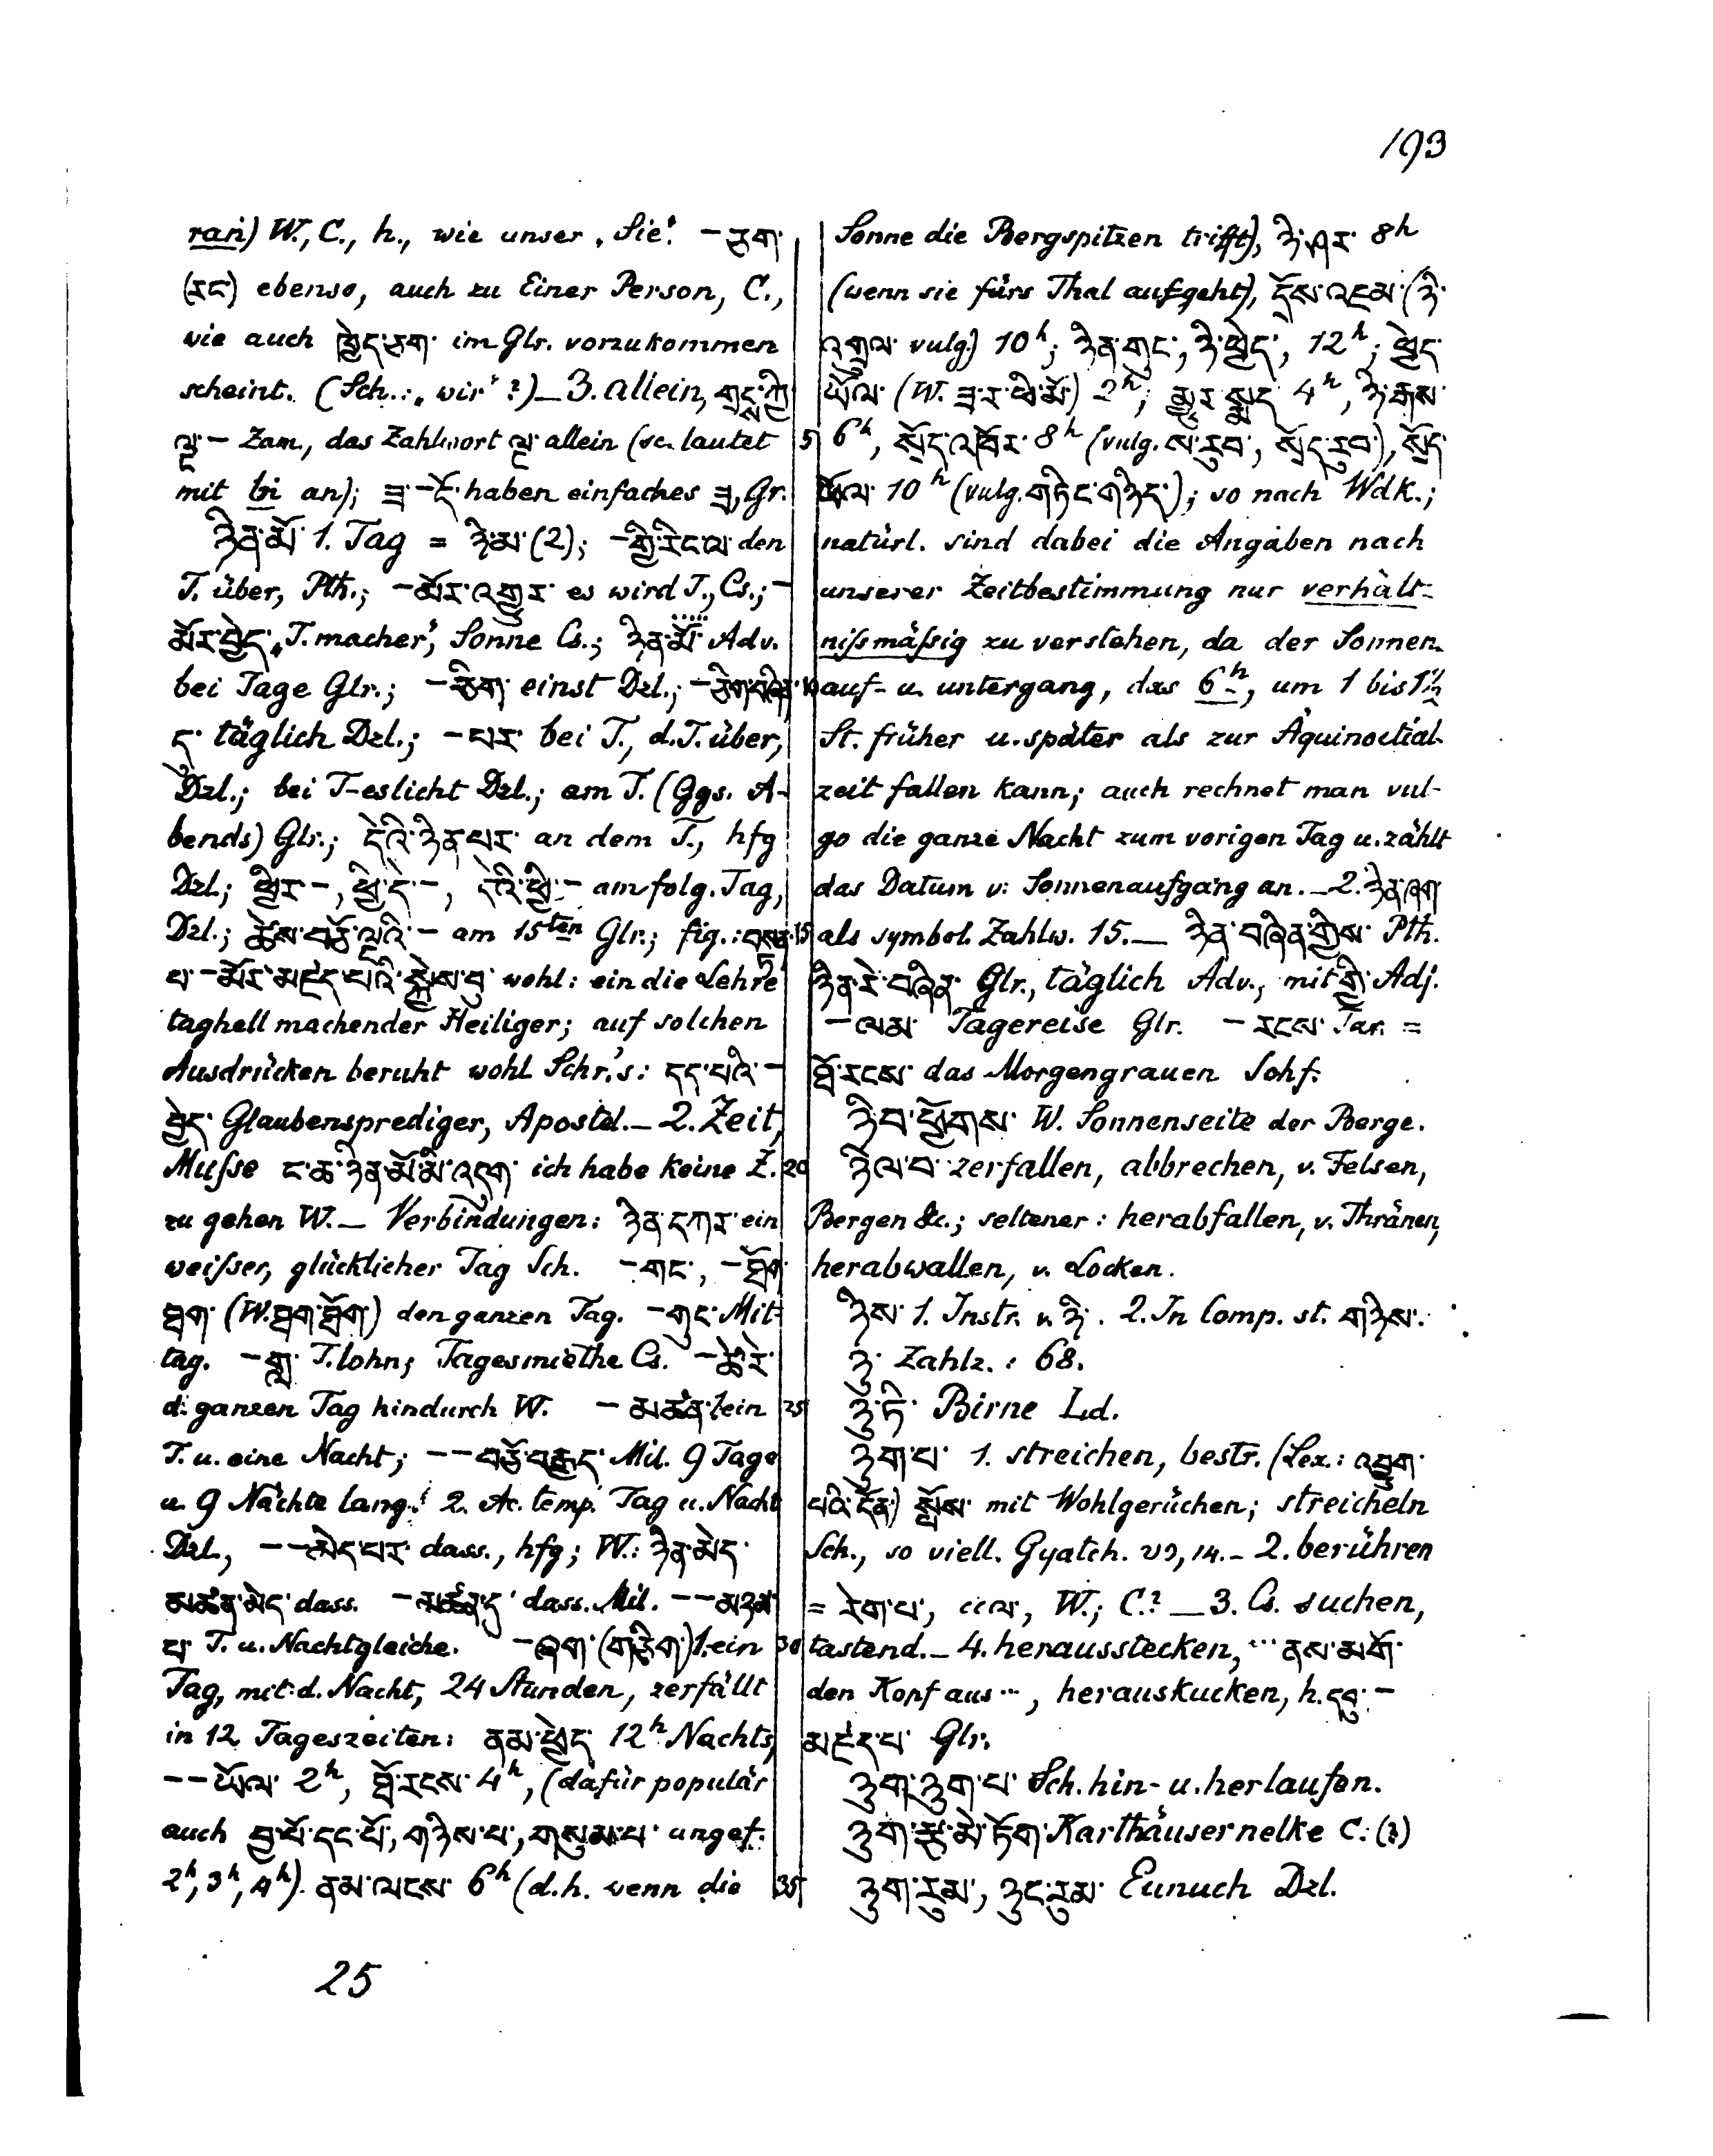 193
ran) W., C., h., wie unser „Sie“. – ཉག་
(རང) ebenso, auch zu Einer Person, C.,
wie auch ཁྱེད་ཉག་ im Glr. vorzukommen
scheint. (Sch.: „wir“?) – 3. allein,
ལྔ་ – Zam., das Zahlwort ལྔ་ allein (sc. lautet
mit an); ཟླ་ – haben einfaches ཟླ, Gr.
ཉིན་མོ་ 1. Tag = ཉི་མ་ (2); – གྱི་རིང་ལ་ den
T. über, Pth.; – མོར་འགྱུར་ es wird T., Cs.; –
མོར་བྱེད་ „T. macher“, Sonne Cs.; ཉིན་མོ་ Adv.
bei Tage Glr.; – ཅིག་ einst Dzl.; –
ད་ täglich Dzl.; – པར་ bei T., d. T. über,
Dzl.; bei T-eslicht Dzl.; am T. (Ggs. A-
bends) Glr.; དེའི་ཉིན་པར་ an dem T., hfg
Dzl.; ཕྱིར་ –, ཕྱི་དེ་ –, དེའི་ཕྱི་ – am folg. Tag,
Dzl.; ཚེས་བཅོ་ལྔའི་ – am 15ten Glr.; fig.: བསྟན་
པ་ – མོར་མཛད་པའི་སྐྱེས་བུ་ wohl: ein die Lehre
taghell machender Heiliger; auf solchen
Ausdrücken beruht wohl Schr.'s: དད་པའི་ –
བྱེད་ Glaubensprediger, Apostel. – 2. Zeit,
Musse ང་ཆ་ཉིན་མོ་མི་འདུག་ ich habe keine Z.
zu gehen W. – Verbindungen: ཉིན་དཀར་ ein
weisser, glücklicher Tag Sch. – གང་, – ཐོག་
ཐག་ (W. ཐག་ཐོག་) den ganzen Tag. – གུང་ Mit-
tag. – གླ་ T. lohn; Tagesmiethe Cs. – ཚེ་རེ་
d. ganzen Tag hindurch W. – མཚན་ 1. ein
T. u. eine Nacht; – – བཅོ་བརྒྱད་ Mil. 9 Tage
u. 9 Nächte lang. 2. Ac. temp. Tag u. Nacht
Dzl., – – མེད་པར་ dass., hfg; W.: ཉིན་མེད་
མཚན་མེད་ dass. – མཚན་དུ་ dass. Mil. – – མཉམ་
པ་ T. u. Nachtgleiche. – ཞག་ (གཅིག་) 1. ein
Tag, mit d. Nacht, 24 Stunden, zerfällt
in 12 Tageszeiten: ནམ་ཕྱེད་ 12h Nachts,
– – ཡོལ་ 2h, ཐོ་རངས་ 4h, (dafür populär
auch བྱ་པོ་དང་པོ་, གཉིས་པ་, གསུམ་པ་ ungef.
2h, 3h, 4h). ནམ་ལངས་ 6h (d.h. wenn die
Sonne die Bergspitzen trifft), ཉི་ཤར་ 8h
(wenn sie fürs Thal aufgeht), དྲོས་འཇམ་ (ཉི་
vulg.) 10h; ཉིན་གུང་, ཉི་ཕྱེད་, 12h; ཕྱེད་
ཡོལ་ (W. ཟ་ར་ཕི་མོ་) 2h, མྱུར་སྨད་ 4h, ཉི་རྒས་
5 6h, སྲོད་འཁོར་ 8h (vulg. ས་རུབ་, སྲོད་རུབ་), སྲོད་
ཡོལ་ 10h (vulg. གཏིང་གཉིད་); so nach Wdk.;
natürl. sind dabei die Angaben nach
unserer Zeitbestimmung nur verhält-
nissmässig zu verstehen, da der Sonnen-
10 auf- u. untergang, das 6h, um 1 bis 1½
St. früher u. später als zur Äquinoctial-
zeit fallen kann; auch rechnet man vul-
go die ganze Nacht zum vorigen Tag u. zählt
das Datum v. Sonnenaufgang an. – 2. ཉིན་ཞག
15 als symbol. Zahlw. 15. – ཉིན་བཞིན་གྱིས་ Pth.
ཉིན་རེ་བཞིན་ Glr., täglich Adv., mit གྱི་ Adj.
– ལམ་ Tagereise Glr. – རངས་ Tar. =
ཐོ་རངས་ das Morgengrauen Schf.
ཉི་བ་ཕྱོགས་ W. Sonnenseite der Berge.
20 ཉིལ་བ་ zerfallen, abbrechen, v. Felsen,
Bergen &c.; seltener: herabfallen, v. Thränen,
herabwallen, v. Locken.
ཉིས་ 1. Instr. v. ཉི་. 2. In Comp. st. གཉིས་.
ཉུ་ Zahlz.: 68.
25 ཉུ་ཏི་ Birne Ld.
ཉུག་པ་ 1. streichen, bestr. (Lex.: འབྱུག་
པའི་དོན་) སྤོས་ mit Wohlgerüchen; streicheln
Sch., so viell. Gyatch. ༢༡, 14. – 2. berühren
= རེག་པ་, „ལ་, W.; C.? – 3. Cs. suchen,
30 tastend. – 4. herausstecken, ... ནས་མགོ་
den Kopf aus ..., herauskucken, h. དབུ་ –
མཛད་པ་ Glr.
ཉུག་ཉུག་པ་ Sch. hin- u. herlaufen.
ཉུག་རྫ་མེ་ཏོག་ Karthäusernelke C. (?)
35 ཉུག་རུམ་, ཉུང་རུམ་ Eunuch Dzl.
25